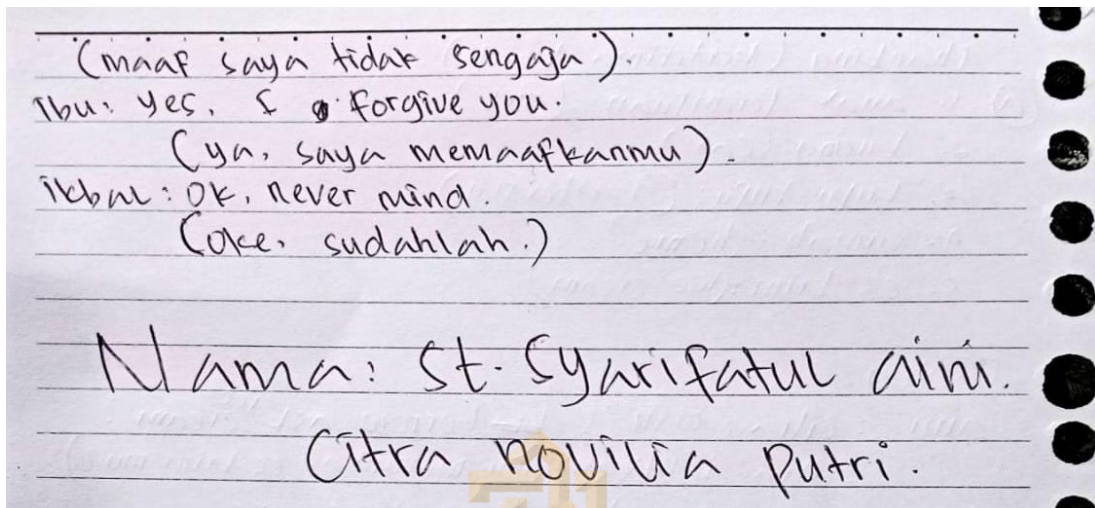 (maaf saya tidak sengaja).
Ibu: yes. I forgive you.
(ya, saya memaafkanmu).
ikbal: Ok, never mind.
(oke, sudahlah.)
Nama: St. Syarifatul aini.
Citra novilia putri.